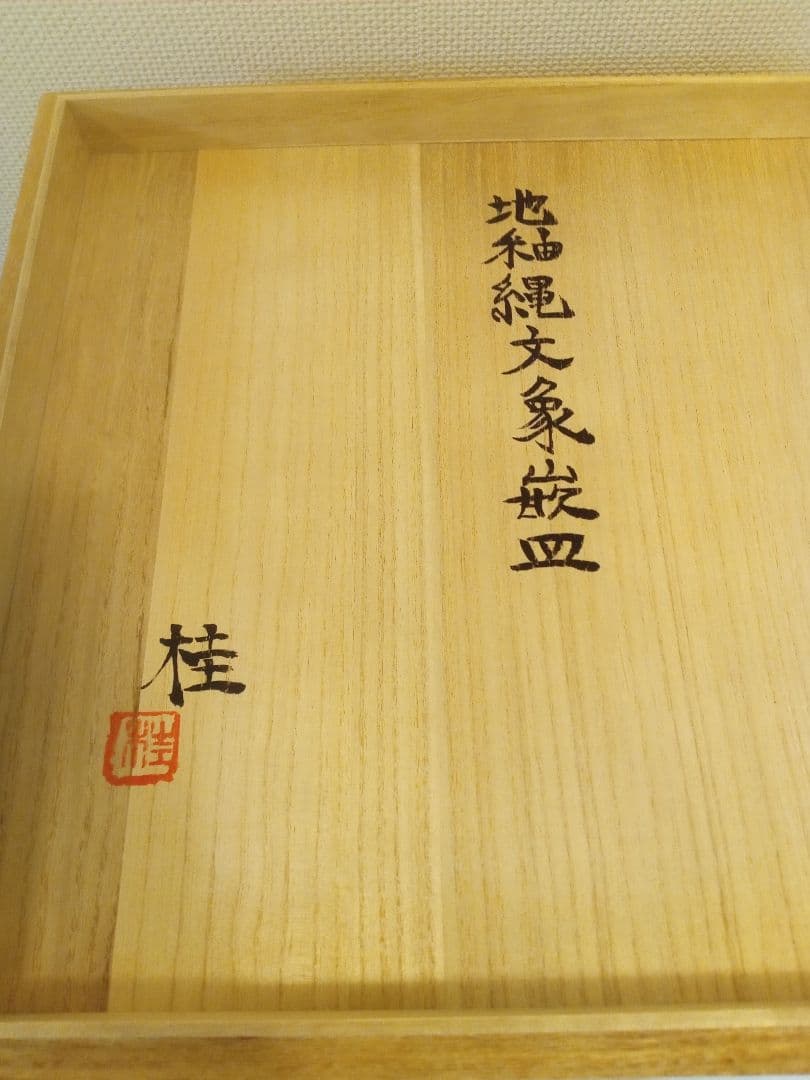 地釉縄文象嵌皿
桂
桂